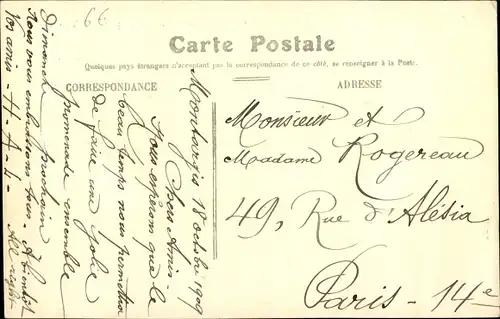 66
Carte Postale
Quelques pays étrangers n'acceptant pas la correspondance de ce côté, se renseigner à la Poste.
CORRESPONDANCE
ADRESSE
Montargis 18 octobre 1909
Chers Amis
Nous espérons que le
beau temps nous permettra
de faire une jolie
promenade ensemble
Dimanche prochain
Nous vous embrassons tous. A bientôt
Vos amis - H - A - L -
Monsieur et
Madame Rogereau
49, Rue d'Alésia
Paris - 14e